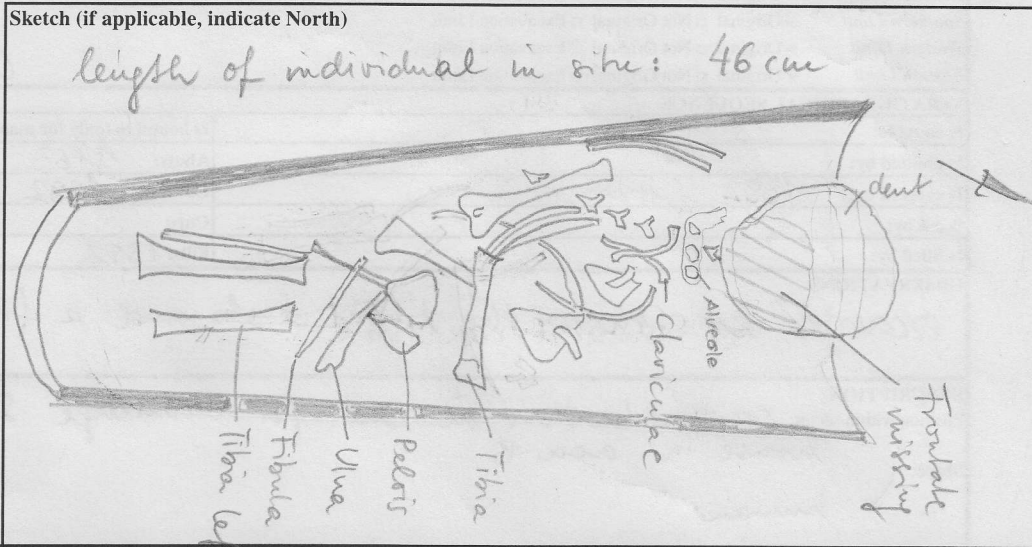 Sketch (if applicable, indicate North)
length of individual in situ: 46 cm
dent
Alveole
Claviculae
Frontale
missing
Tibia
Pelvis
Ulna
Fibula
Tibia